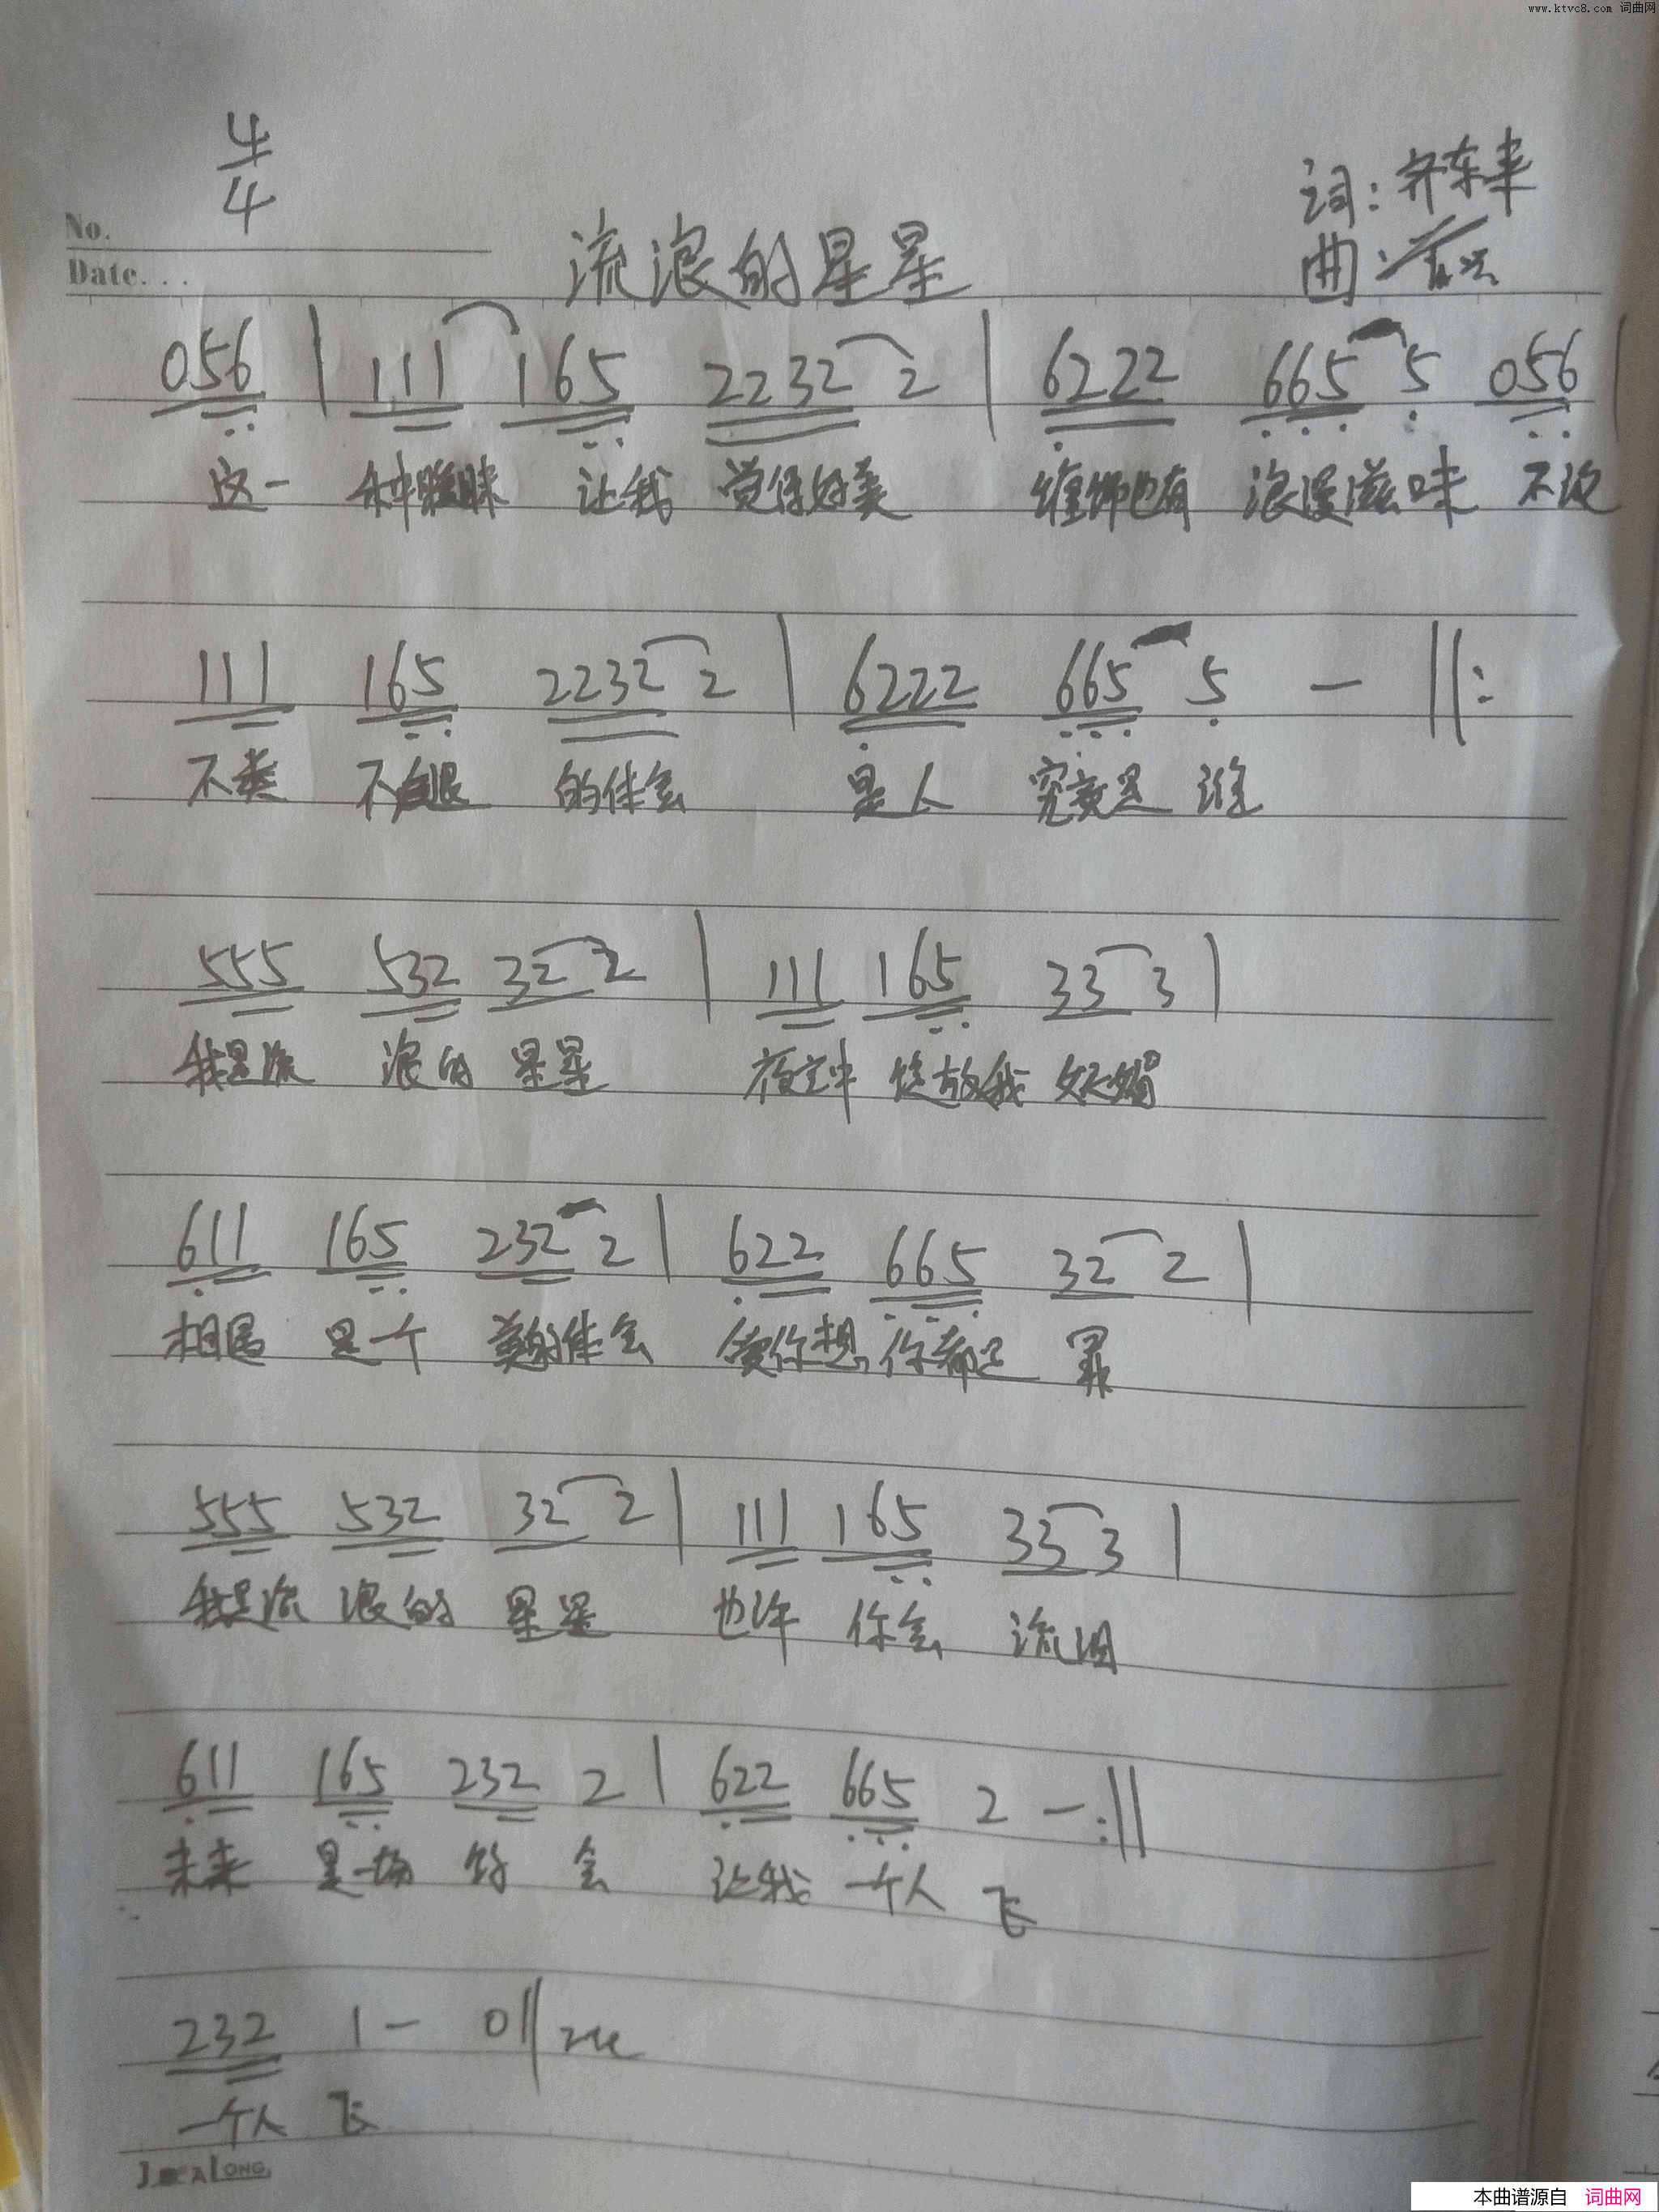 www.ktvc8.com 词曲网
4
4
词:齐东来
No.
流浪的星星
曲:
Date...
056 | 111 165 2232 2 | 6222 665 5 056 |
这一 种暧昧 让我 觉得好美 缠绵也有 浪漫滋味 不说
111 165 2232 2 | 6222 665 5 — ||:
不类 不 的体会 是人 究竟是 谁
555 532 32 2 | 111 165 33 3 |
我是流 浪的 星星 夜空中 绽放我 妩媚
611 165 232 2 | 622 665 32 2 |
相遇 是一个 美的体会 你想 你都是 罪
555 532 32 2 | 111 165 33 3 |
我是流 浪的 星星 也许 你会 流泪
611 165 232 2 | 622 665 2 — :||
未来 是一场 约 会 让我 一个人 飞
232 1 — 0 ||
一个人 飞
本曲谱源自 词曲网